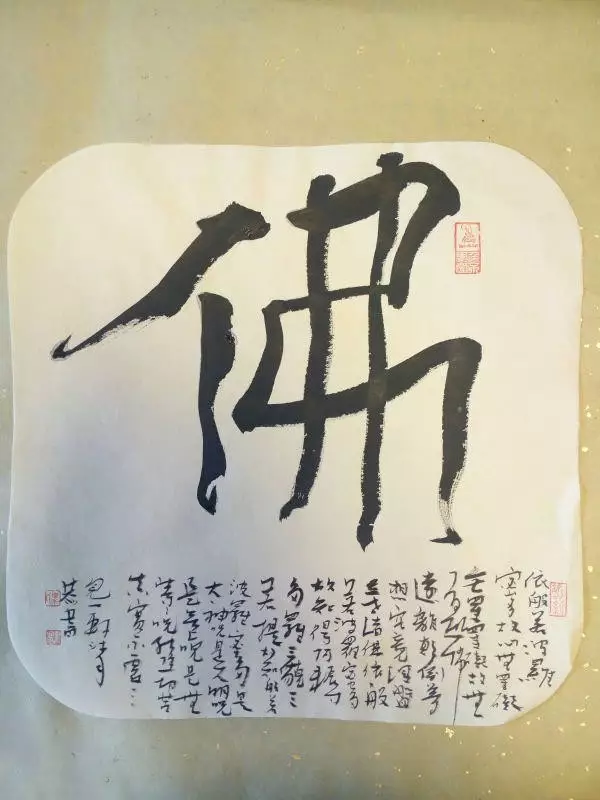 佛
依般若波羅
密多故心無罣礙
無罣礙故無
有恐怖
遠離顛倒夢
想究竟涅槃
三世諸佛依般
若波羅密多
故得阿耨
多羅三藐三
菩提故知般若
波羅密多是
大神咒是大明咒
是無上咒是無
等等咒能除一切苦
真實不虛
恭書